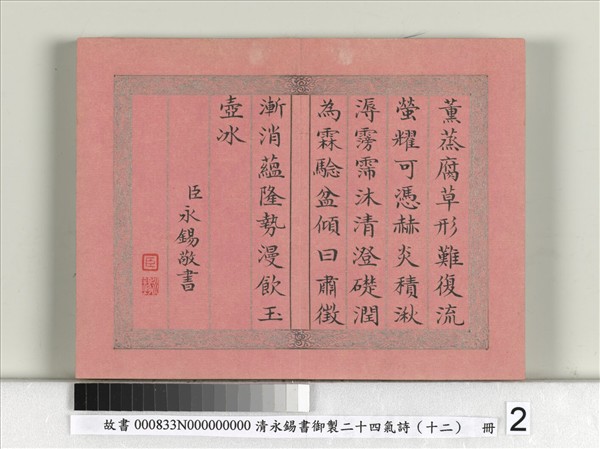 薰蒸腐草形難復流
螢耀可憑赫炎積湫
溽霧霈沐清澄礎潤
為霖驗盆傾曰肅徵
漸消蘊隆勢漫飲玉
壺冰
臣永錫敬書
臣
故書 000833N000000000 清永錫書御製二十四氣詩（十二） 冊
2